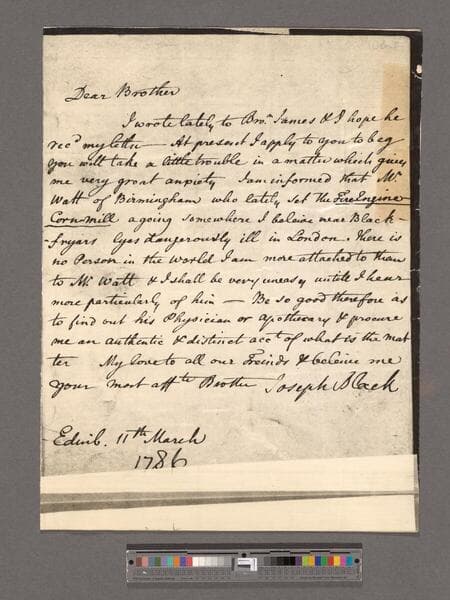 Dear Brother
I wrote lately to Bro.r James & I hope he
rec.d my letter — At present I apply to you to beg
you will take a little trouble in a matter which gives
me very great anxiety I am informed that Mr.
Watt of Birmingham who lately set the Fire Engine
Corn-mill a going somewhere I beleive near Black-
-fryars lyes dangerously ill in London. There is
no Person in the World I am more attached to than
to Mr. Watt & I shall be very uneasy untill I hear
more particularly of him — Be so good therefore as
to find out his Physician or apothecary & procure
me an authentic & distinct acc.t of what is the mat
ter My love to all our Freinds & beleive me
your most aff.te Brother Joseph Black
Edinb. 11th March
1786